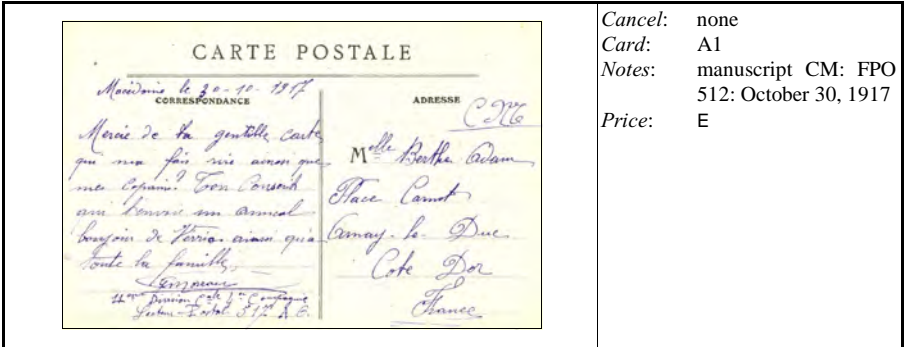 CARTE POSTALE
Macédoine le 30-10-1917
CORRESPONDANCE
Mercie de ta gentille carte
qui ma fais rire ainsi que
mes Copains
ami t'envoie un amical
bonjour de Verria ainsi qu'a
toute la famille
Division Compagnie
Secteur Postal 512 A.O.
ADRESSE
Melle Berthe Adam
Place Carnot
Arnay-le-Duc
Cote Dor
France
Cancel: none
Card: A1
Notes: manuscript CM: FPO
512: October 30, 1917
Price: E